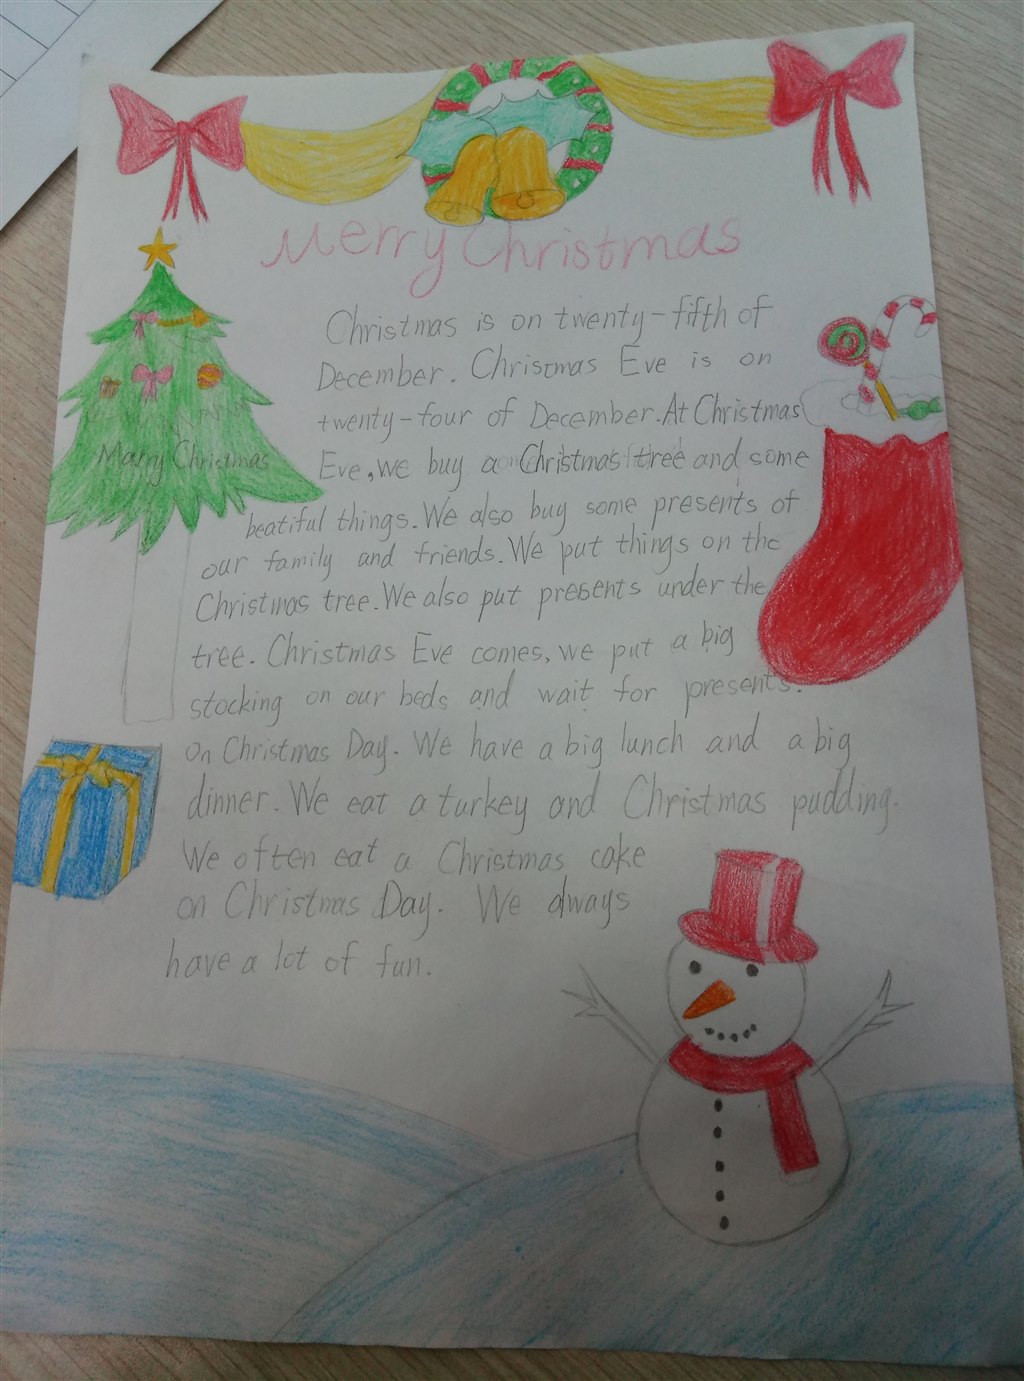 Merry Christmas
Christmas is on twenty-fifth of
December. Chrisomas Eve is on
twenty-four of December. At Christmas
Eve, we buy a Christmas tree and some
Marry Christmas
beatiful things. We also buy some presents of
our family and friends. We put things on the
Christmas tree. We also put presents under the
tree. Christmas Eve comes, we put a big
stocking on our beds and wait for presents.
On Christmas Day. We have a big lunch and a big
dinner. We eat a turkey and Christmas pudding.
We often eat a Christmas cake
on Christmas Day. We always
have a lot of fun.